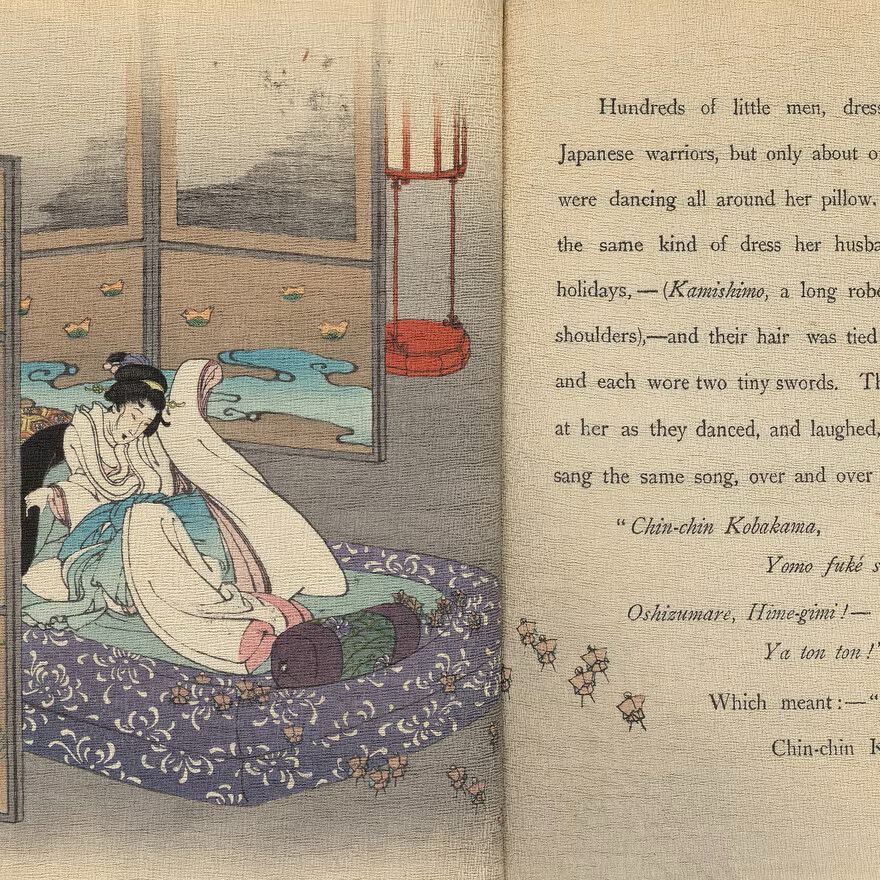 Hundreds of little men, dress
Japanese warriors, but only about o
were dancing all around her pillow.
the same kind of dress her husba
holidays,—(Kamishimo, a long robe
shoulders),—and their hair was tied
and each wore two tiny swords. Th
at her as they danced, and laughed,
sang the same song, over and over
“Chin-chin Kobakama,
Yomo fuké s
Oshizumare, Hime-gimi!—
Ya ton ton!”
Which meant:—“
Chin-chin K